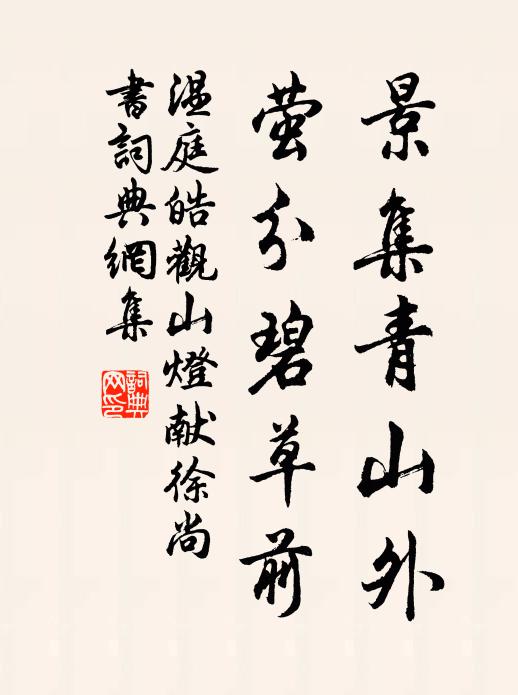 景集青山外
萤分碧草前
温庭皓觀山燈献徐尚
書詞典網集
詞典
网印